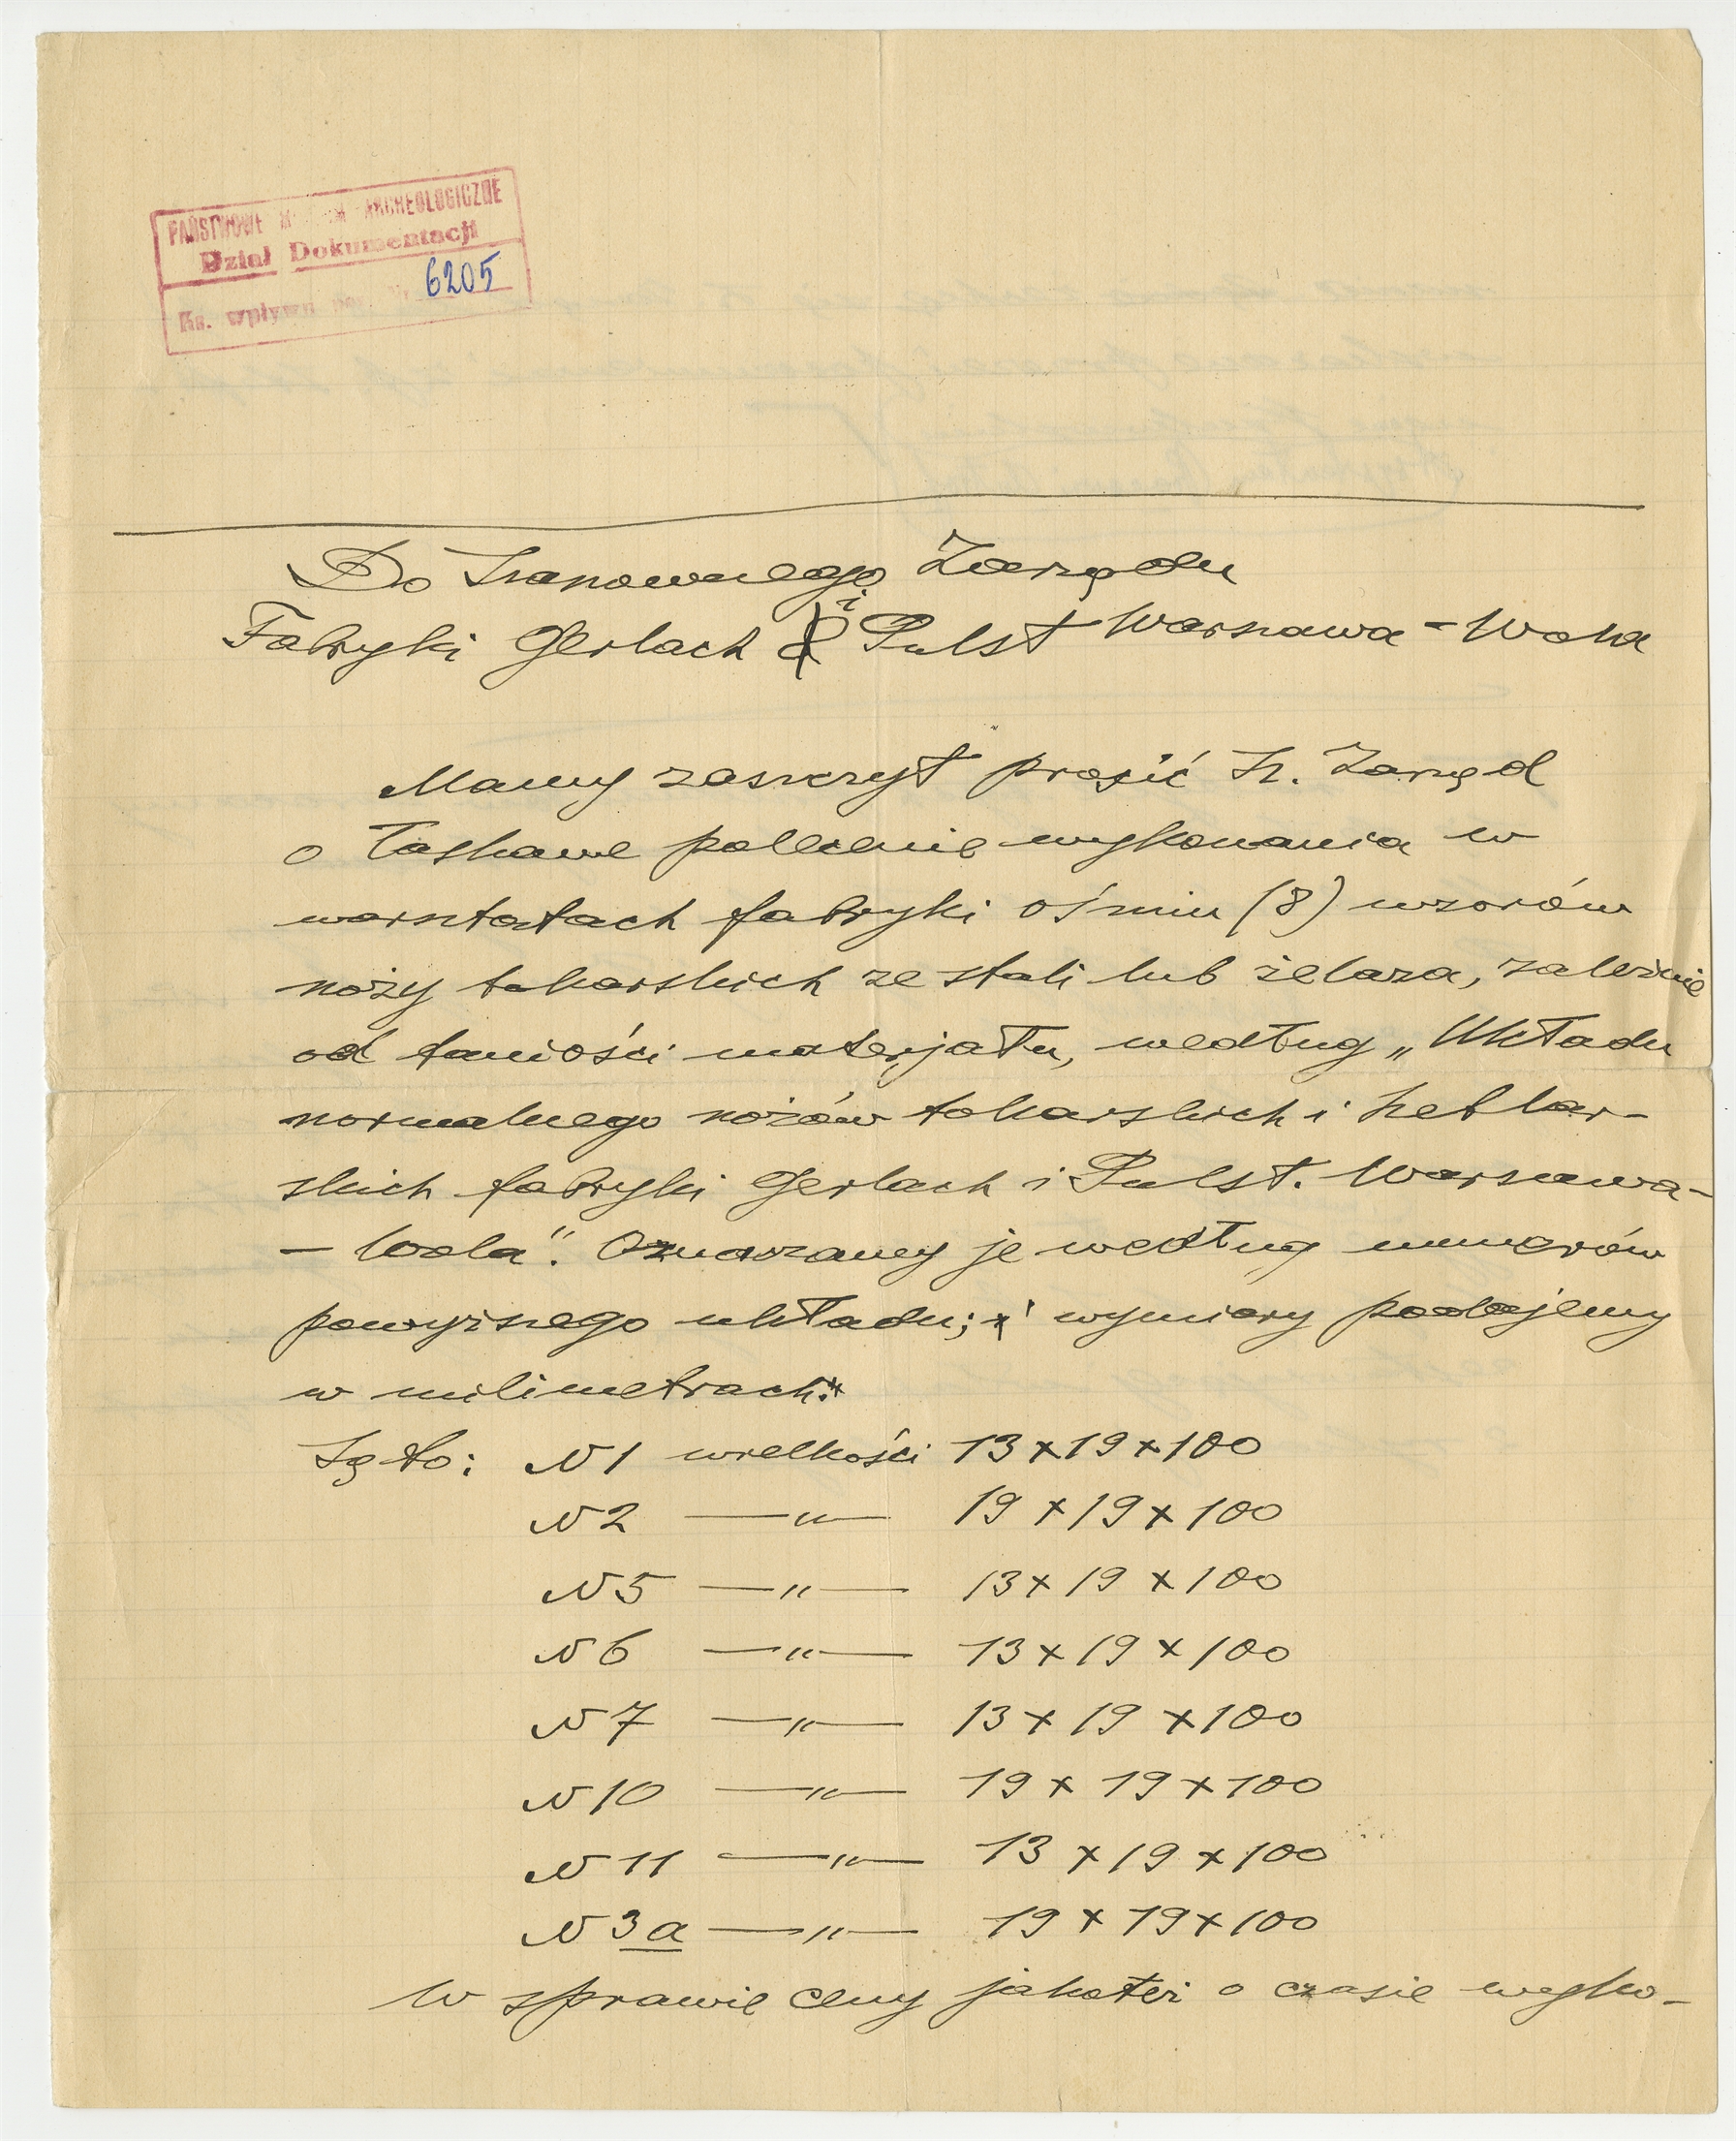 PAŃSTWOWE ARCHEOLOGICZNE
Dział Dokumentacji
Ks. wpływu 6205
Do Szanownego Zarządu
Fabryki Gerlach i Pulst Warszawa – Wola
Mamy zaszczyt prosić Sz. Zarząd
o łaskawe polecenie wykonania w
warsztatach fabryki ośmiu (8) wzorów
noży tokarskich ze stali lub żelaza, zależnie
od taniości materjału, według „Układu
normalnego nożów tokarskich i heblar-
skich fabryki Gerlach i Pulst. Warszawa-
– Wola". Oznaczamy je według numerów
powyższego układu; wymiary podajemy
w milimetrach:
Są to: N 1 wielkości 13 x 19 x 100
N 2 —„— 19 x 19 x 100
N 5 —„— 13 x 19 x 100
N 6 —„— 13 x 19 x 100
N 7 —„— 13 x 19 x 100
N 10 —„— 19 x 19 x 100
N 11 —„— 13 x 19 x 100
N 3a —„— 19 x 19 x 100
W sprawie ceny jakoteż o czasie wyko-